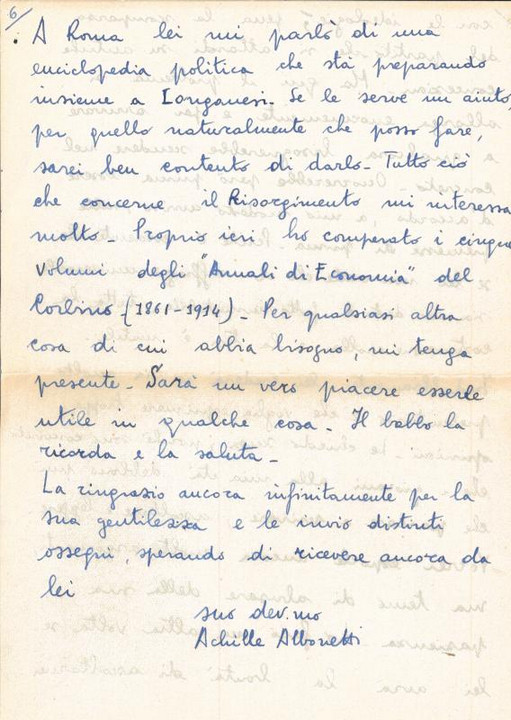 6/
A Roma lei mi parlò di una
enciclopedia politica che sta preparando
insieme a Longanesi. Se le serve un aiuto,
per quello naturalmente che posso fare,
sarei ben contento di darlo. Tutto ciò
che concerne il Risorgimento mi interessa
molto. Proprio ieri ho comperato i cinque
volumi degli "Annali di Economia" del
Corbino (1861-1914). Per qualsiasi altra
cosa di cui abbia bisogno, mi tenga
presente. Sarà un vero piacere esserle
utile in qualche cosa. Il babbo la
ricorda e la saluta.
La ringrazio ancora infinitamente per la
sua gentilezza e le invio distinti
ossegni, sperando di ricevere ancora da
lei
suo dev.mo
Achille Albonetti